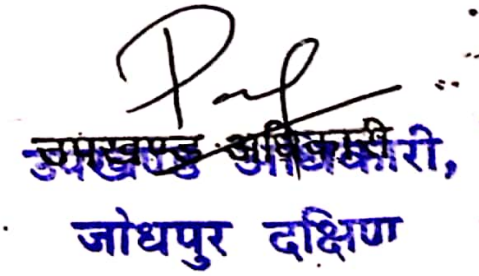 उपखण्ड अधिकारी,
जोधपुर दक्षिण